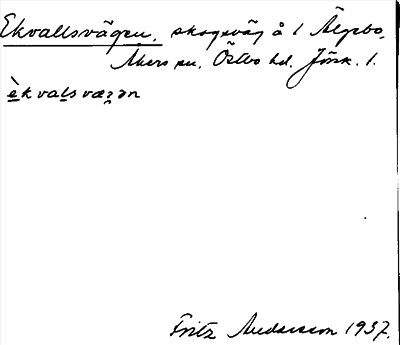 Ekvallsvägen, skogsväg å 1 Älgebo,
Åkers sn, Östbo hd. Jönk. l.
èkvalsvægən
Fritz Andersson 1937.